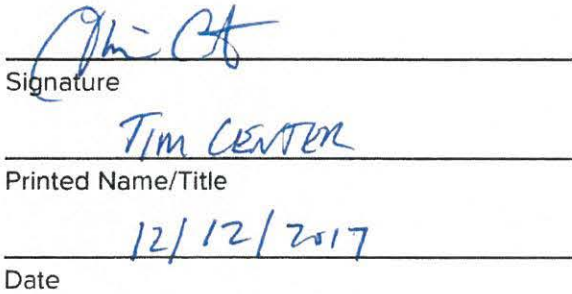 Signature
TIM CENTER
Printed Name/Title
12/12/2017
Date